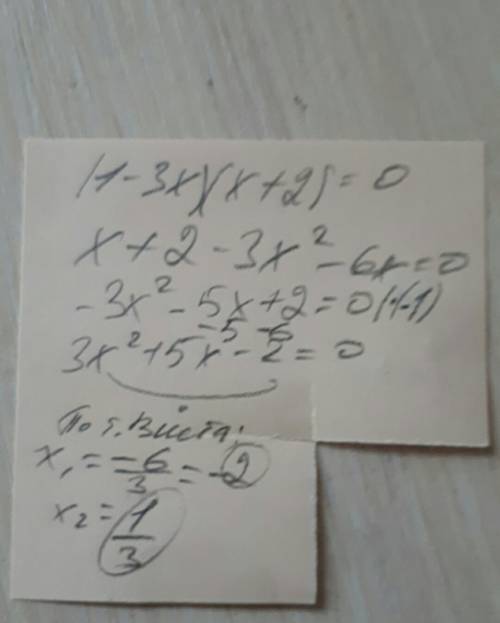 (1-3x)(x+2)=0
x+2-3x²-6x=0
-3x²-5x+2=0 |·(-1)
-5 -6
3x²+5x-2=0
По т. Виета:
x₁=-6/3=-2
x₂=1/3